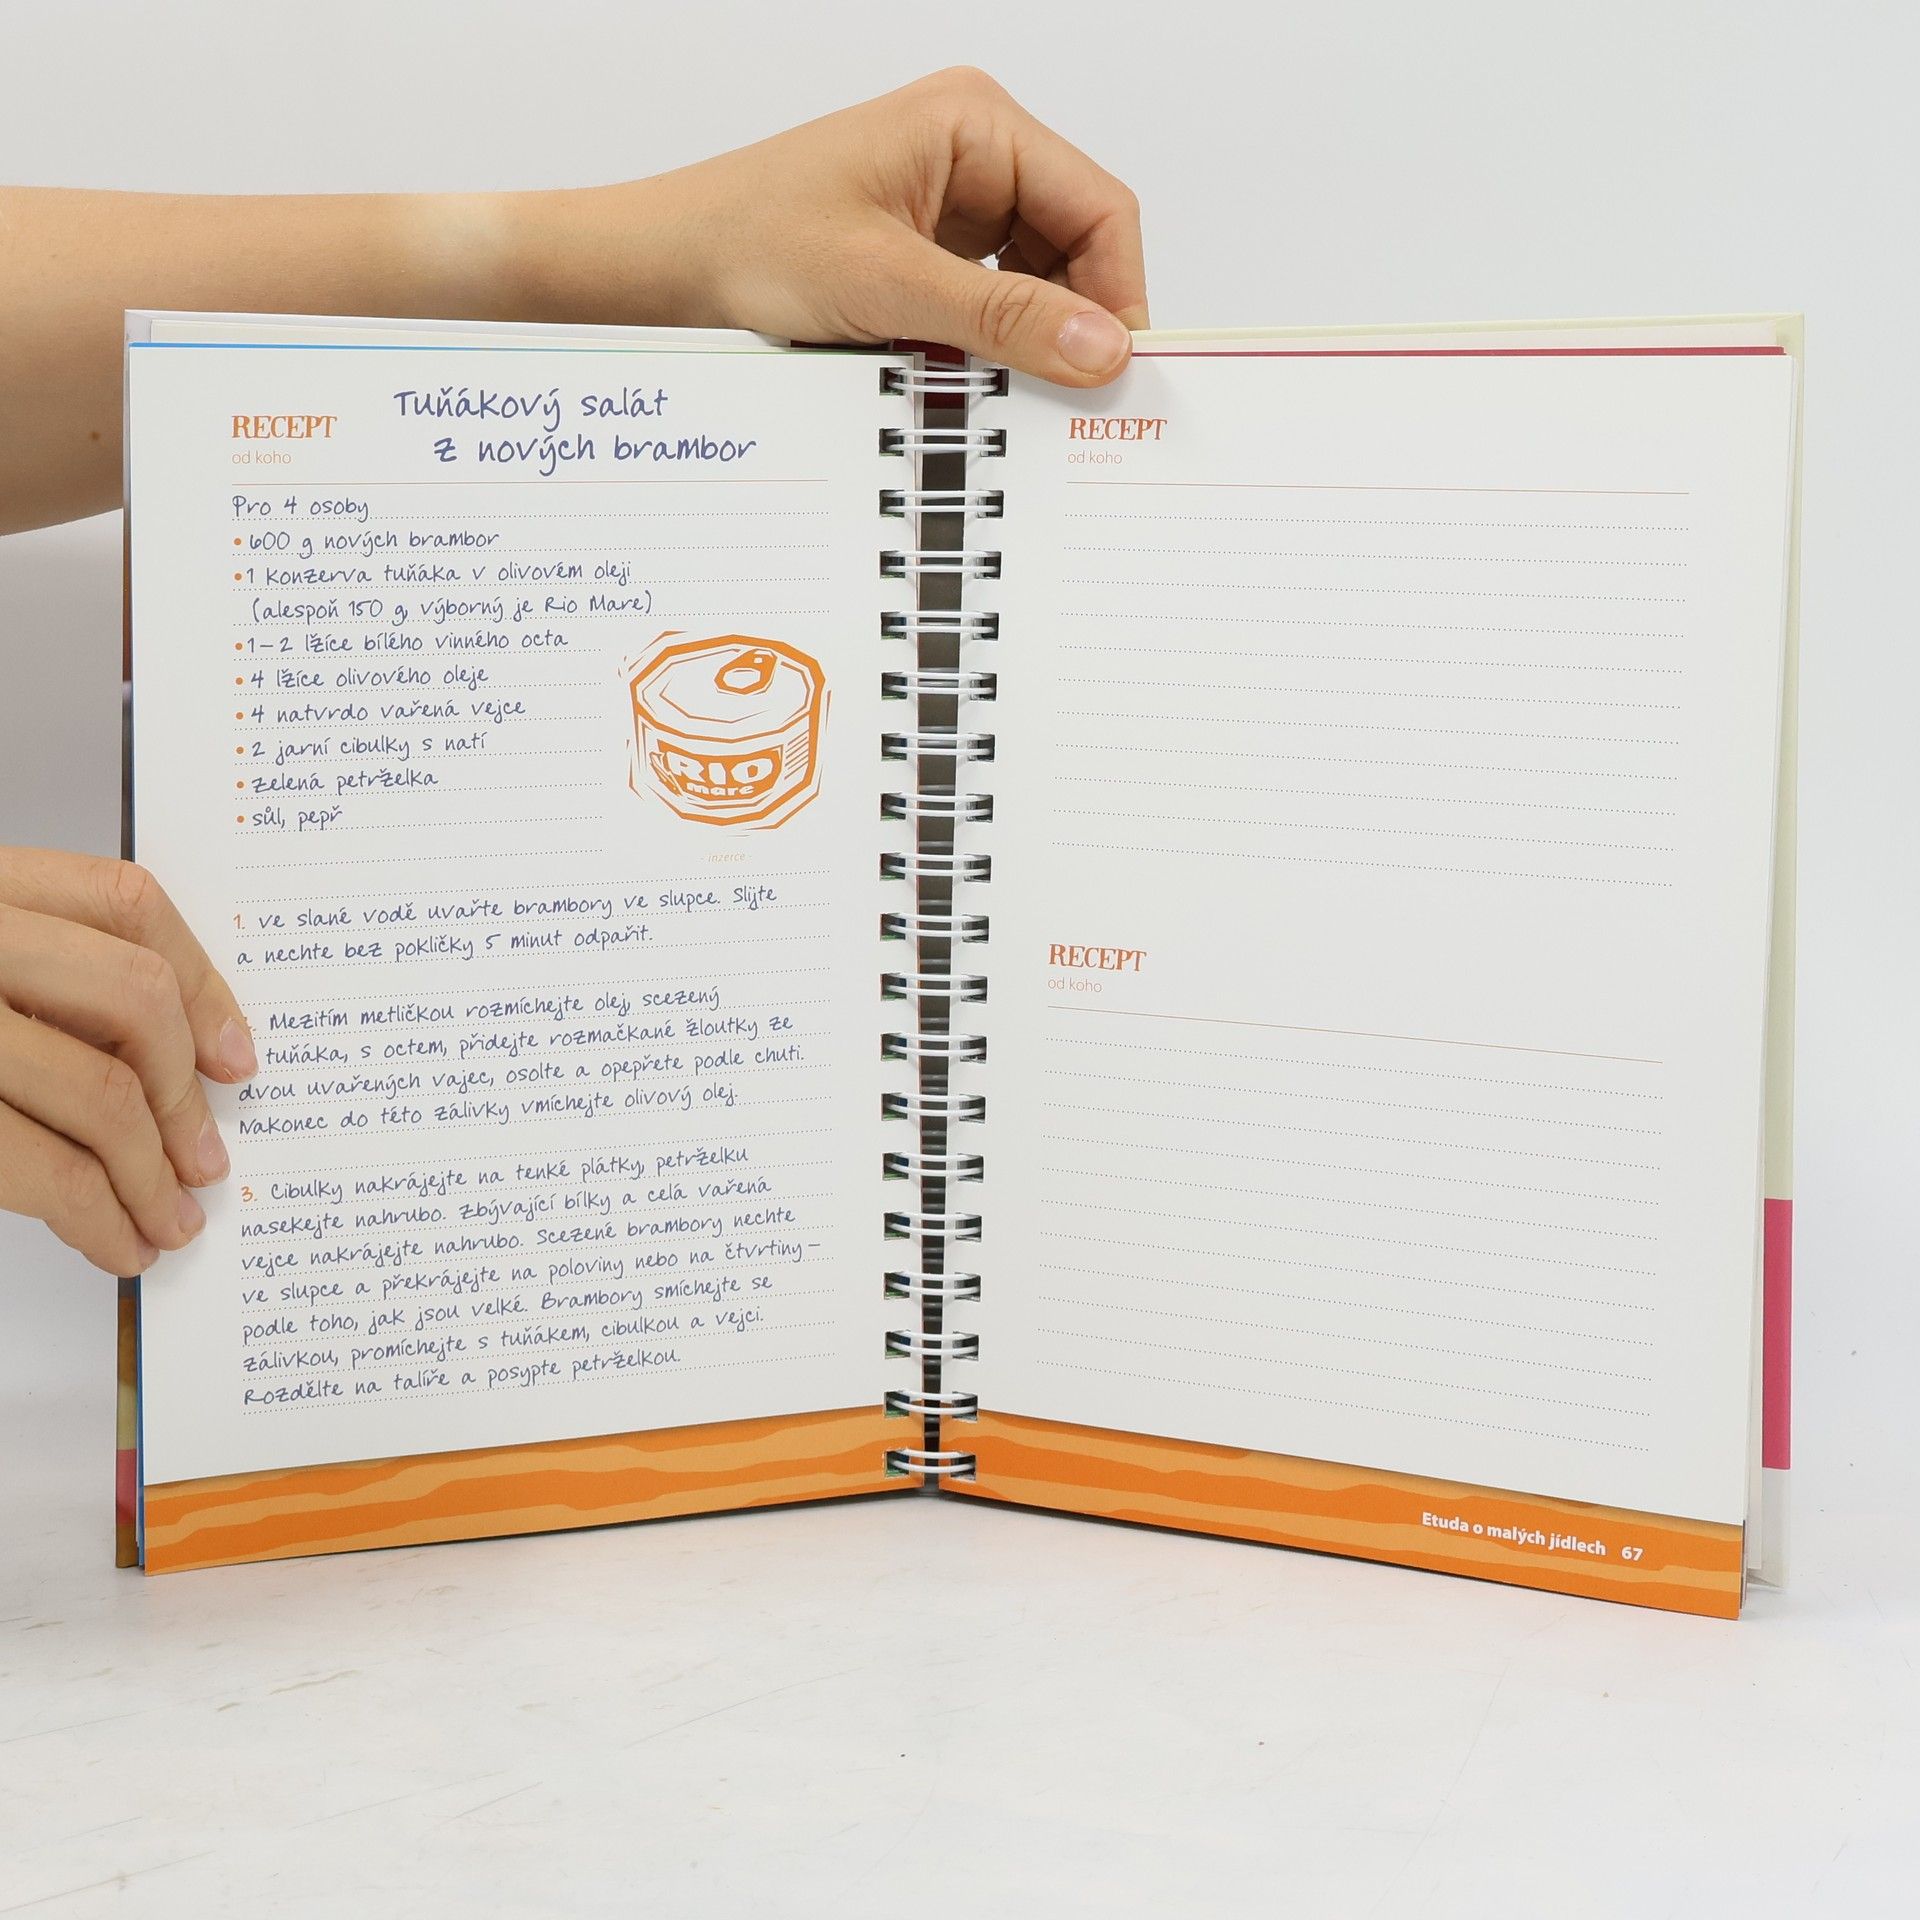 RECEPT
od koho
Tuňákový salát
z nových brambor
Pro 4 osoby
• 600 g nových brambor
• 1 konzerva tuňáka v olivovém oleji
(alespoň 150 g, výborný je Rio Mare)
• 1–2 lžíce bílého vinného octa
• 4 lžíce olivového oleje
• 4 natvrdo vařená vejce
• 2 jarní cibulky s natí
• zelená petrželka
• sůl, pepř
RIO
mare
- inzerce -
1. Ve slané vodě uvařte brambory ve slupce. Slijte
a nechte bez pokličky 5 minut odpařit.
. Mezitím metličkou rozmíchejte olej, scezený
tuňáka, s octem, přidejte rozmačkané žloutky ze
dvou uvařených vajec, osolte a opepřete podle chuti.
Nakonec do této zálivky vmíchejte olivový olej.
3. Cibulky nakrájejte na tenké plátky, petrželku
nasekejte nahrubo. Zbývající bílky a celá vařená
vejce nakrájejte nahrubo. Scezené brambory nechte
ve slupce a překrájejte na poloviny nebo na čtvrtiny –
podle toho, jak jsou velké. Brambory smíchejte se
zálivkou, promíchejte s tuňákem, cibulkou a vejci.
Rozdělte na talíře a posypte petrželkou.
RECEPT
od koho
RECEPT
od koho
Etuda o malých jídlech 67